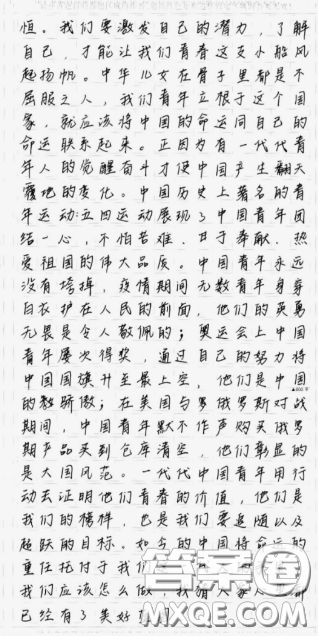 恒。我们要激发自己的潜力，了解
自己，才能让我们青春这支小船风
起扬帆。中华儿女在骨子里都是不
屈服之人，我们青年立根于这个国
家，就应该将中国的命运同自己的
命运联系起来。正因为有一代代青
年人的觉醒奋斗才使中国产生翻天
覆地的变化。中国历史上著名的青
年运动:五四运动展现了中国青年团
结一心，不怕苦难，甘于奉献，热
爱祖国的伟大品质。中国青年永远
没有垮掉，疫情期间无数青年身穿
白衣护在人民的前面，他们的英勇
无畏是令人敬佩的；奥运会上中国
青年屡次得奖，通过自己的努力将
中国国旗升至最上空，他们是中国
的骄傲；在美国与罗俄罗斯对战
期间，中国青年默不作声购买俄罗
斯产品买到仓库清空，他们彰显的
是大国风范。一代代中国青年用行
动去证明他们青春的价值，他们是
我们的榜样，也是我们要追随以及
超跃的目标。如今的中国将命运的
重任托付于我们
我们应该怎么做，我
已经有了美好
答案圈
MXQE.COM